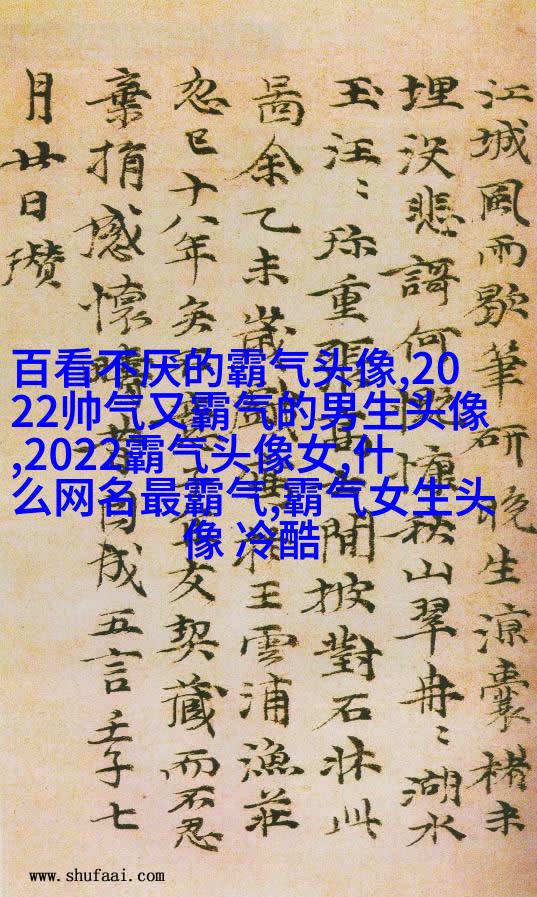 江城風雨歇筆研晚生涼囊楮未
埋没悲謌何慷秋山翠冉〻湖水
玉汪〻珎重閒披對石牀此
啚余乙未歲戲王雲浦漁莊
忽已十八年矣不友契藏而不忍
棄捐感懷昔因成五言壬子七
月廿日瓚
百看不厌的霸气头像,20
22帅气又霸气的男生头像
,2022霸气头像女,什
么网名最霸气,霸气女生头
像 冷酷
www.shufaai.com